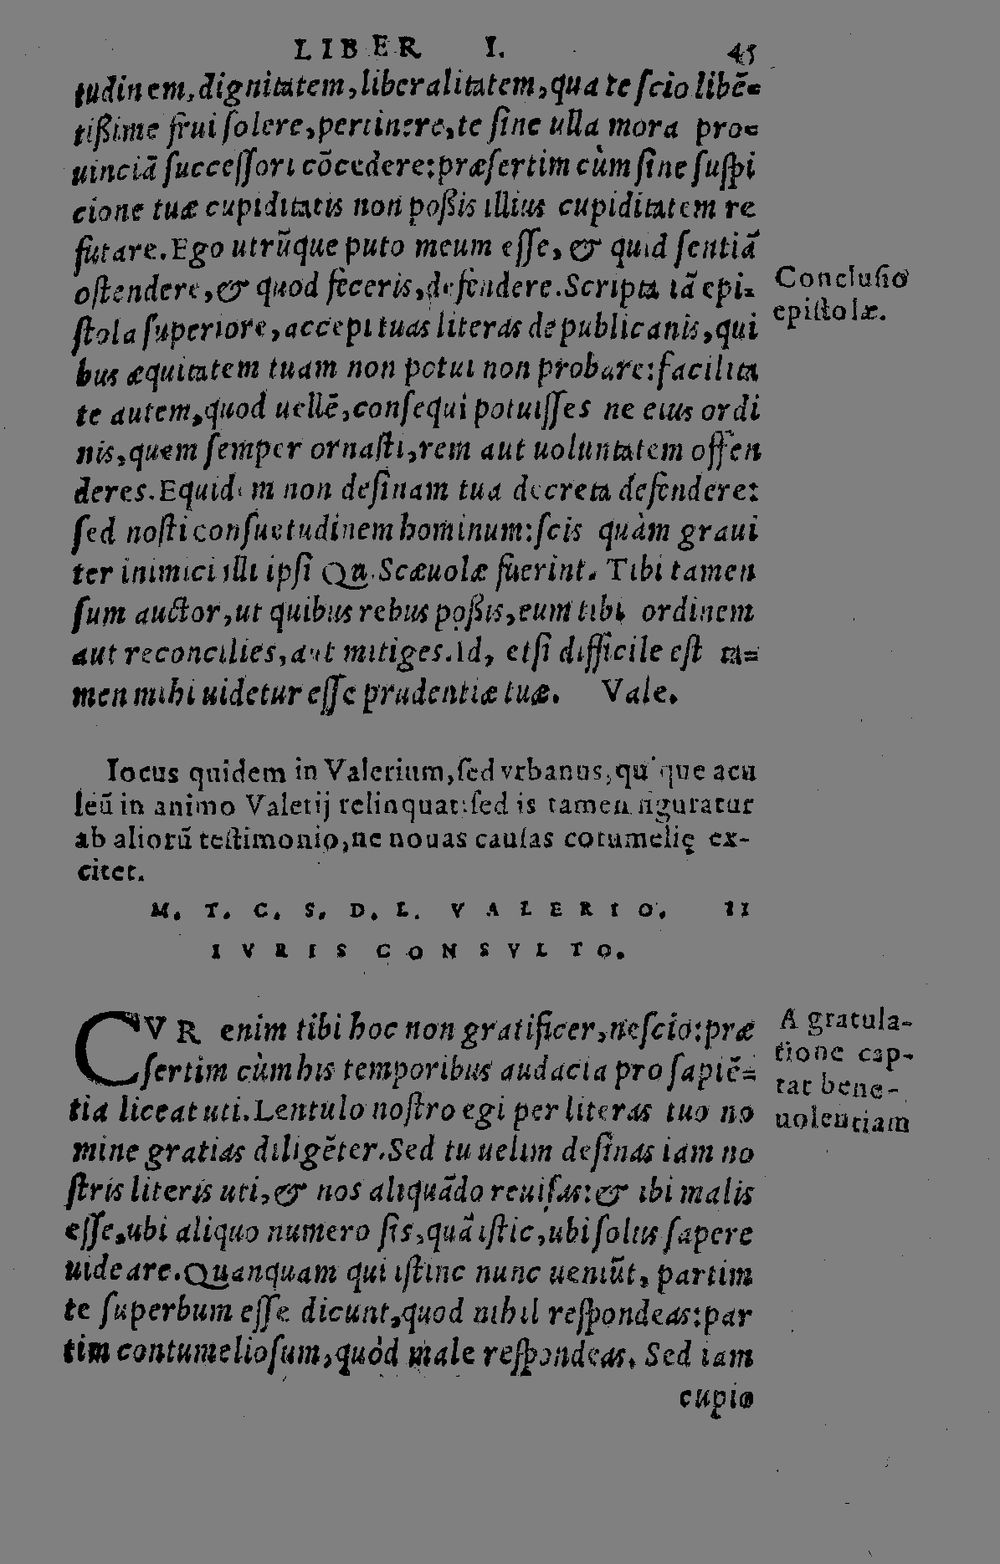 LIBER I. 45
tudinem, dignitatem, liberalitatem, qua te ſcio libẽ=
tißime frui ſolere, pertinere, te ſine ulla mora pro=
uinciã ſucceſſori cõcedere: præſertim cùm ſine ſuſpi
cione tuæ cupiditatis non poßis illius cupiditatem re
futare. Ego utrũque puto meum eſſe, & quid ſentiã
oſtendere, & quod feceris, defendere. Scripta iã epi=
ſtola ſuperiore, accepi tuas literas de publicanis, qui
bus æquitatem tuam non potui non probare: facilita
te autem, quod uellẽ, conſequi potuiſſes ne eius ordi
nis, quem ſemper ornaſti, rem aut uoluntatem offen
deres. Equidem non deſinam tua decreta defendere:
ſed noſti conſuetudinem hominum: ſcis quàm graui
ter inimici illi ipſi Qu. Scæuolæ fuerint. Tibi tamen
ſum auctor, ut quibus rebus poßis, eum tibi ordinem
aut reconcilies, aut mitiges. Id, etſi difficile eſt ta=
men mihi uidetur eſſe prudentiæ tuæ. Vale.
Concluſio
epiſtolæ.
Iocus quidem in Valerium, ſed vrbanus, qui que acu
leũ in animo Valerij relinquat: ſed is tamen figuratur
ab aliorũ teſtimonio, ne nouas cauſas cotumelię ex-
citet.
M. T. C. S. D. L. VALERIO. 11
IVRIS CONSVLTO.
CVR enim tibi hoc non gratificer, neſcio: præ
ſertim cùm his temporibus audacia pro ſapiẽ=
tia liceat uti. Lentulo noſtro egi per literas tuo no
mine gratias diligẽter. Sed tu uelim deſinas iam no
ſtris literis uti, & nos aliquãdo reuiſas: & ibi malis
eſſe, ubi aliquo numero ſis, quã iſtic, ubi ſolus ſapere
uideare. Quanquam qui iſtinc nunc ueniũt, partim
te ſuperbum eſſe dicunt, quod nihil reſpondeas: par
tim contumelioſum, quòd male reſpondeas. Sed iam
cupio
A gratula-
tione cap-
tat bene-
uolentiam